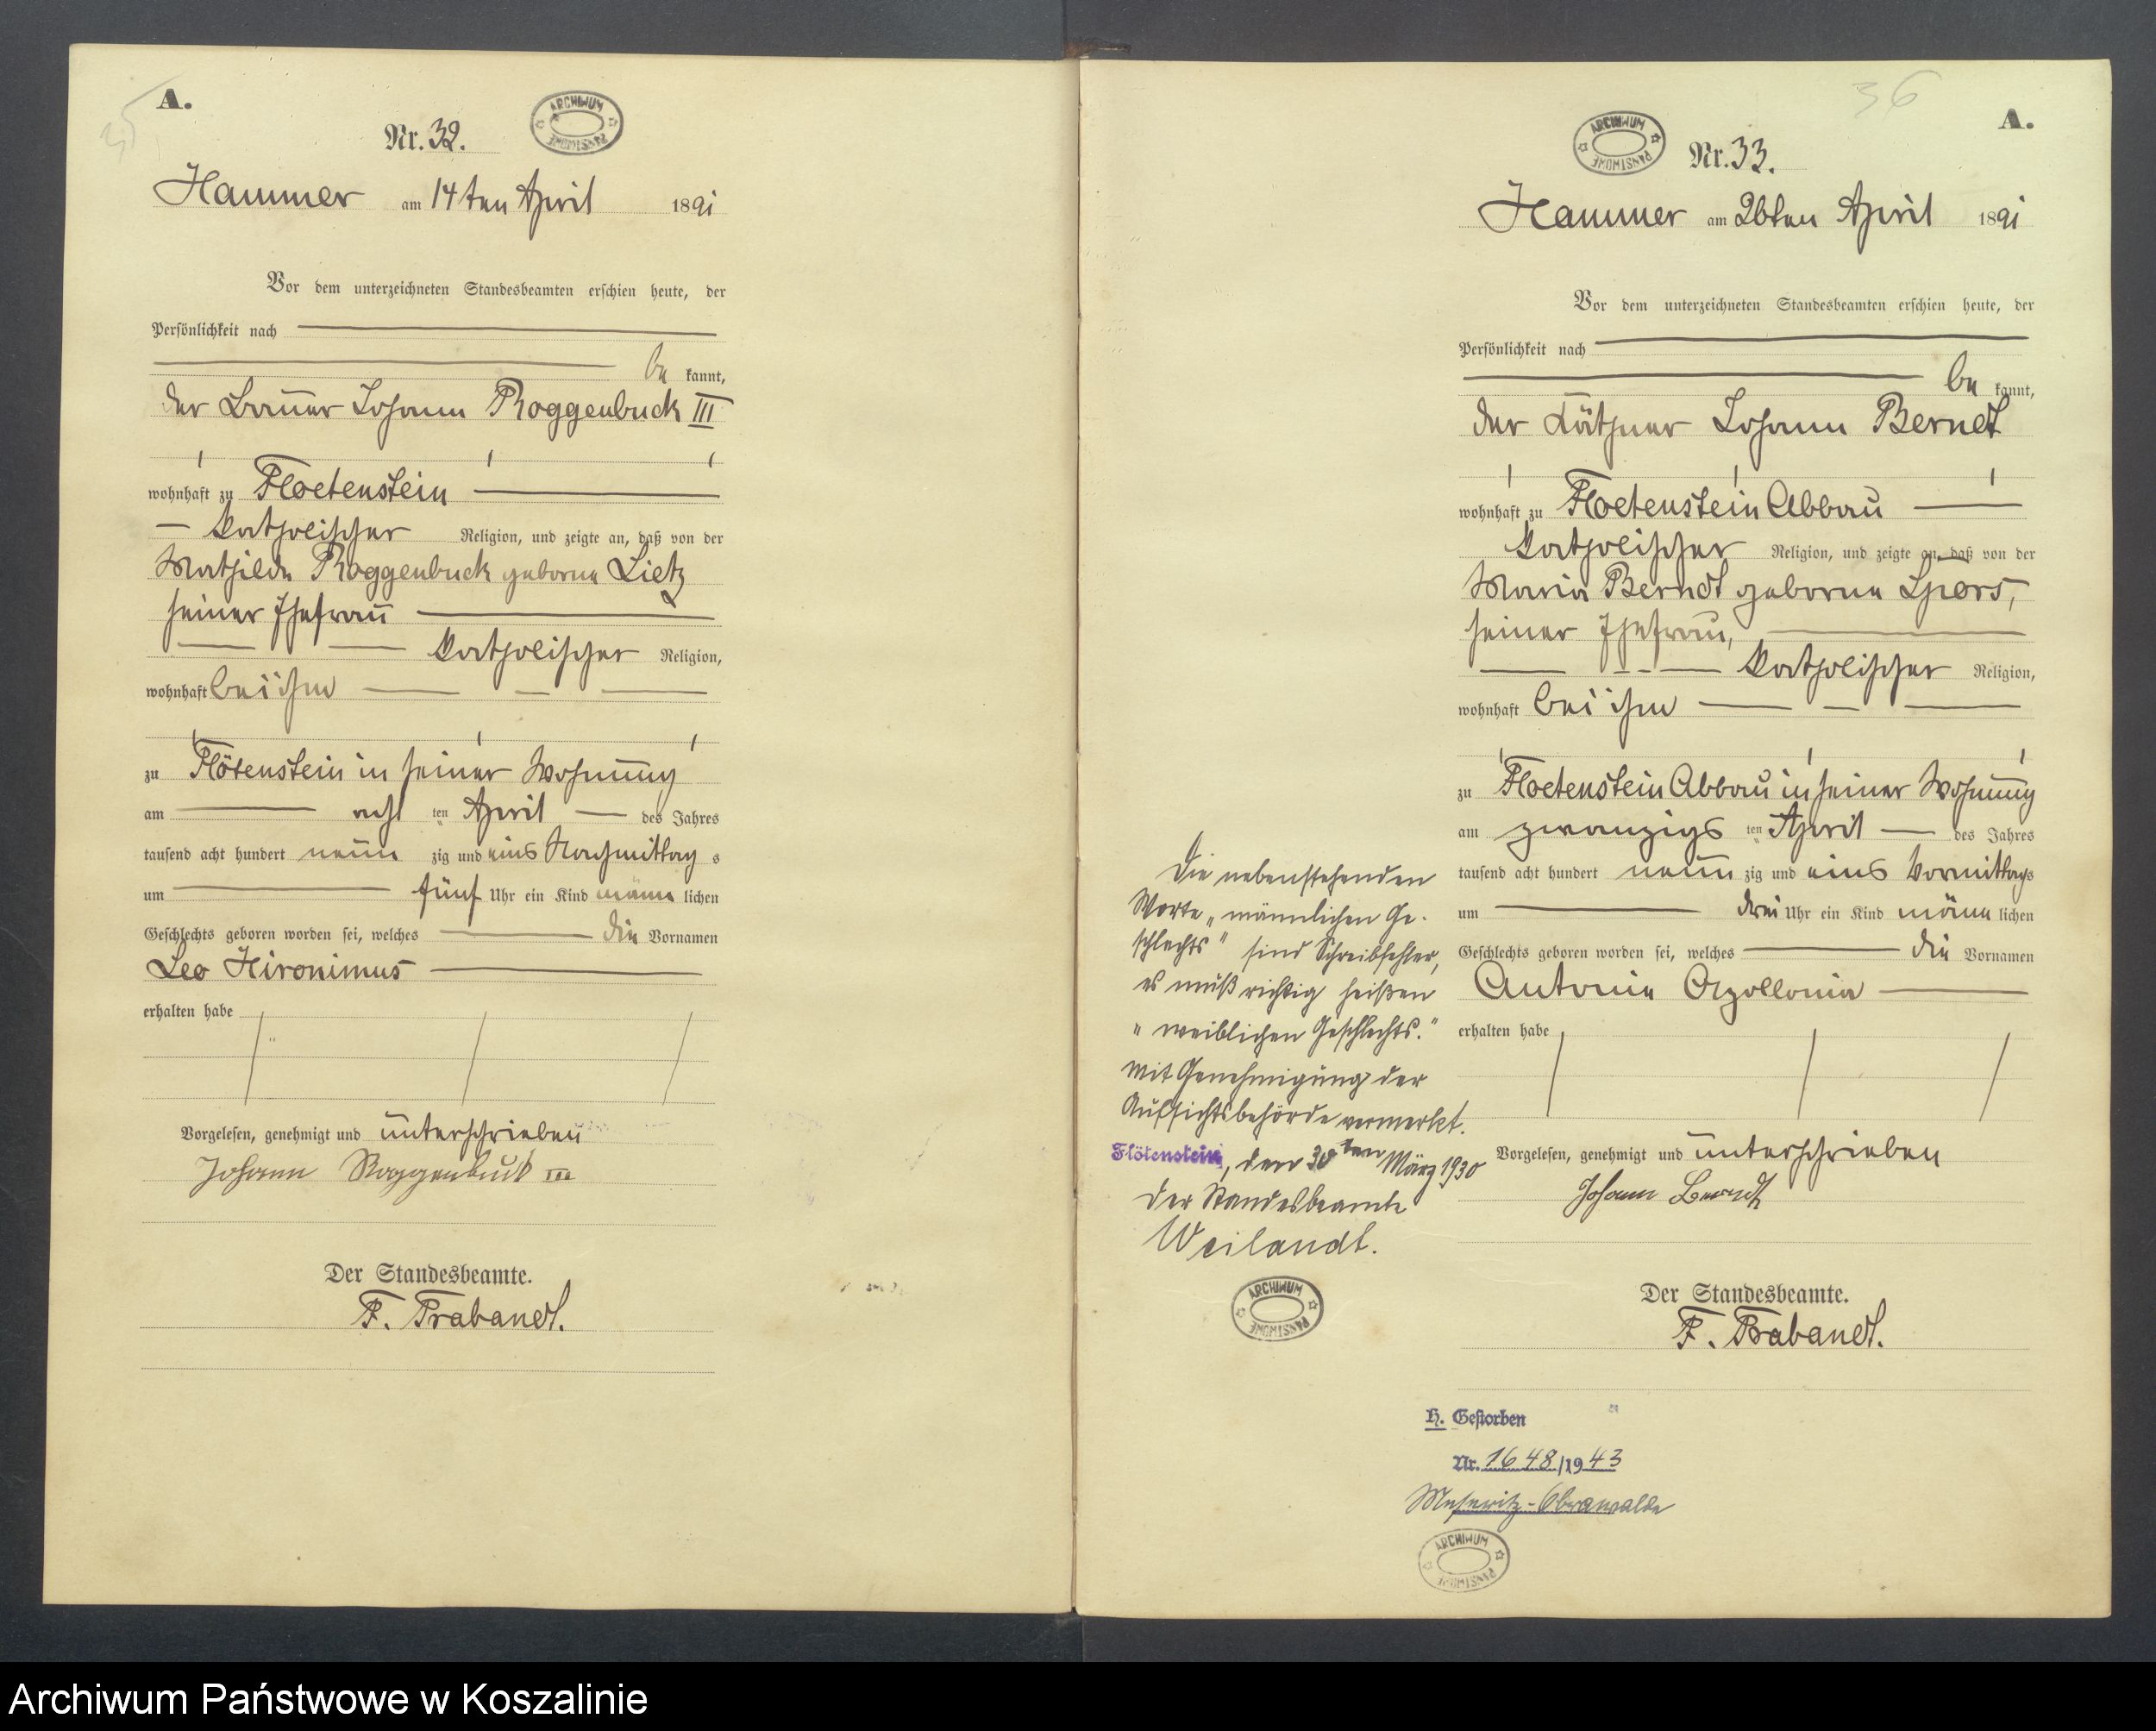 A.
35
Nr. 32.
ARCHIWUM PAŃSTWOWE
Hammer am 14ten April 1891
Vor dem unterzeichneten Standesbeamten erschien heute, der
Persönlichkeit nach
be kannt,
der Bauer Johann Roggenbuck III
wohnhaft zu Floetenstein
katholischer Religion, und zeigte an, daß von der
Mathilde Roggenbuck geborne Lietz
seiner Ehefrau
katholischer Religion,
wohnhaft bei ihm
zu Flötenstein in seiner Wohnung
am acht ten April des Jahres
tausend acht hundert neun zig und eins Nachmittag s
um fünf Uhr ein Kind männ lichen
Geschlechts geboren worden sei, welches die Vornamen
Leo Hironimus
erhalten habe
Vorgelesen, genehmigt und unterschrieben
Johann Roggenbuck III
Der Standesbeamte.
F. Trabandt.
36
A.
ARCHIWUM PAŃSTWOWE
Nr. 33.
Hammer am 26ten April 1891
Vor dem unterzeichneten Standesbeamten erschien heute, der
Persönlichkeit nach
be kannt,
der Käthner Johann Berndt
wohnhaft zu Floetenstein Abbau
katholischer Religion, und zeigte an, daß von der
Maria Berndt geborne Spors,
seiner Ehefrau,
katholischer Religion,
wohnhaft bei ihm
zu Floetenstein Abbau in seiner Wohnung
am zwanzigs ten April des Jahres
tausend acht hundert neun zig und eins Vormittags
um drei Uhr ein Kind männ lichen
Geschlechts geboren worden sei, welches die Vornamen
Antonie Apollonia
erhalten habe
Vorgelesen, genehmigt und unterschrieben
Johann Berndt
Der Standesbeamte.
F. Trabandt.
Die nebenstehenden
Worte „männlichen Ge-
schlechts" sind Schreibfehler,
es muß richtig heißen
„weiblichen Geschlechts."
Mit Genehmigung der
Aufsichtsbehörde vermerkt.
Flötenstein, den 30ten März 1930
Der Standesbeamte
Weilandt.
ARCHIWUM PAŃSTWOWE
H. Gestorben
Nr. 1648/1943
Meseritz-Obrawalde
ARCHIWUM PAŃSTWOWE
Archiwum Państwowe w Koszalinie